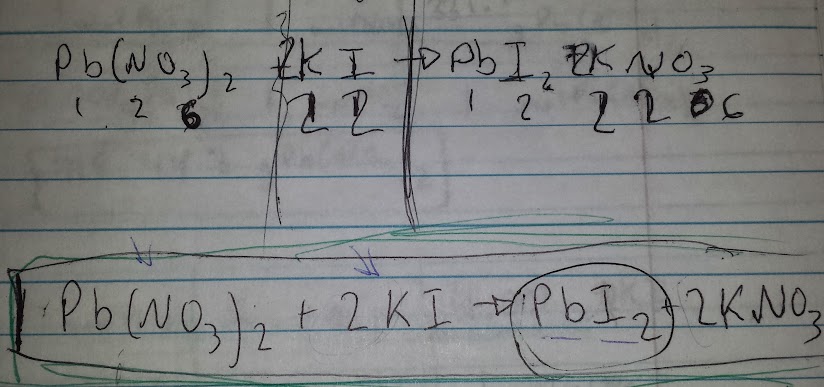 Pb(NO₃)₂ + 2KI → PbI₂ + 2KNO₃
1 2 6 2 2 1 2 2 2 6
Pb(NO₃)₂ + 2KI → PbI₂ + 2KNO₃